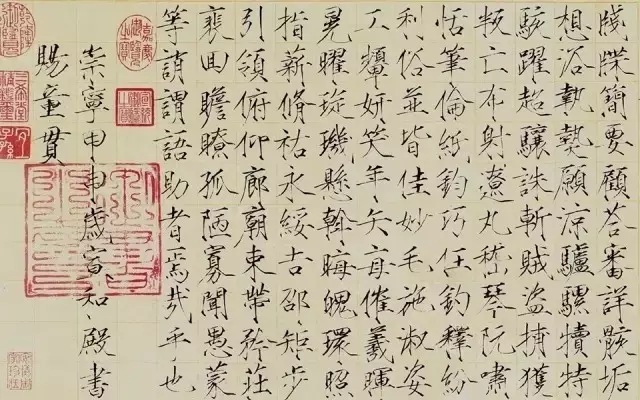 牋牒簡要顧荅審詳骸垢
想浴執熱願涼驢騾犢特
駭躍超驤誅斬賊盜捕獲
叛亡布射遼丸嵇琴阮嘯
恬筆倫紙鈞巧任釣釋紛
利俗並皆佳妙毛施淑姿
工顰妍笑年矢每催羲暉
晃曜琁璣懸斡晦魄環照
指薪脩祜永綏吉邵矩步
引領俯仰廊廟束帶矜莊
裵回瞻瞭孤陋寡聞愚蒙
等誚謂語助者焉哉乎也
崇寧甲申歲宣和殿書
賜童貫
嘉慶御覽之寶
三希堂精鑑璽
宜子孫